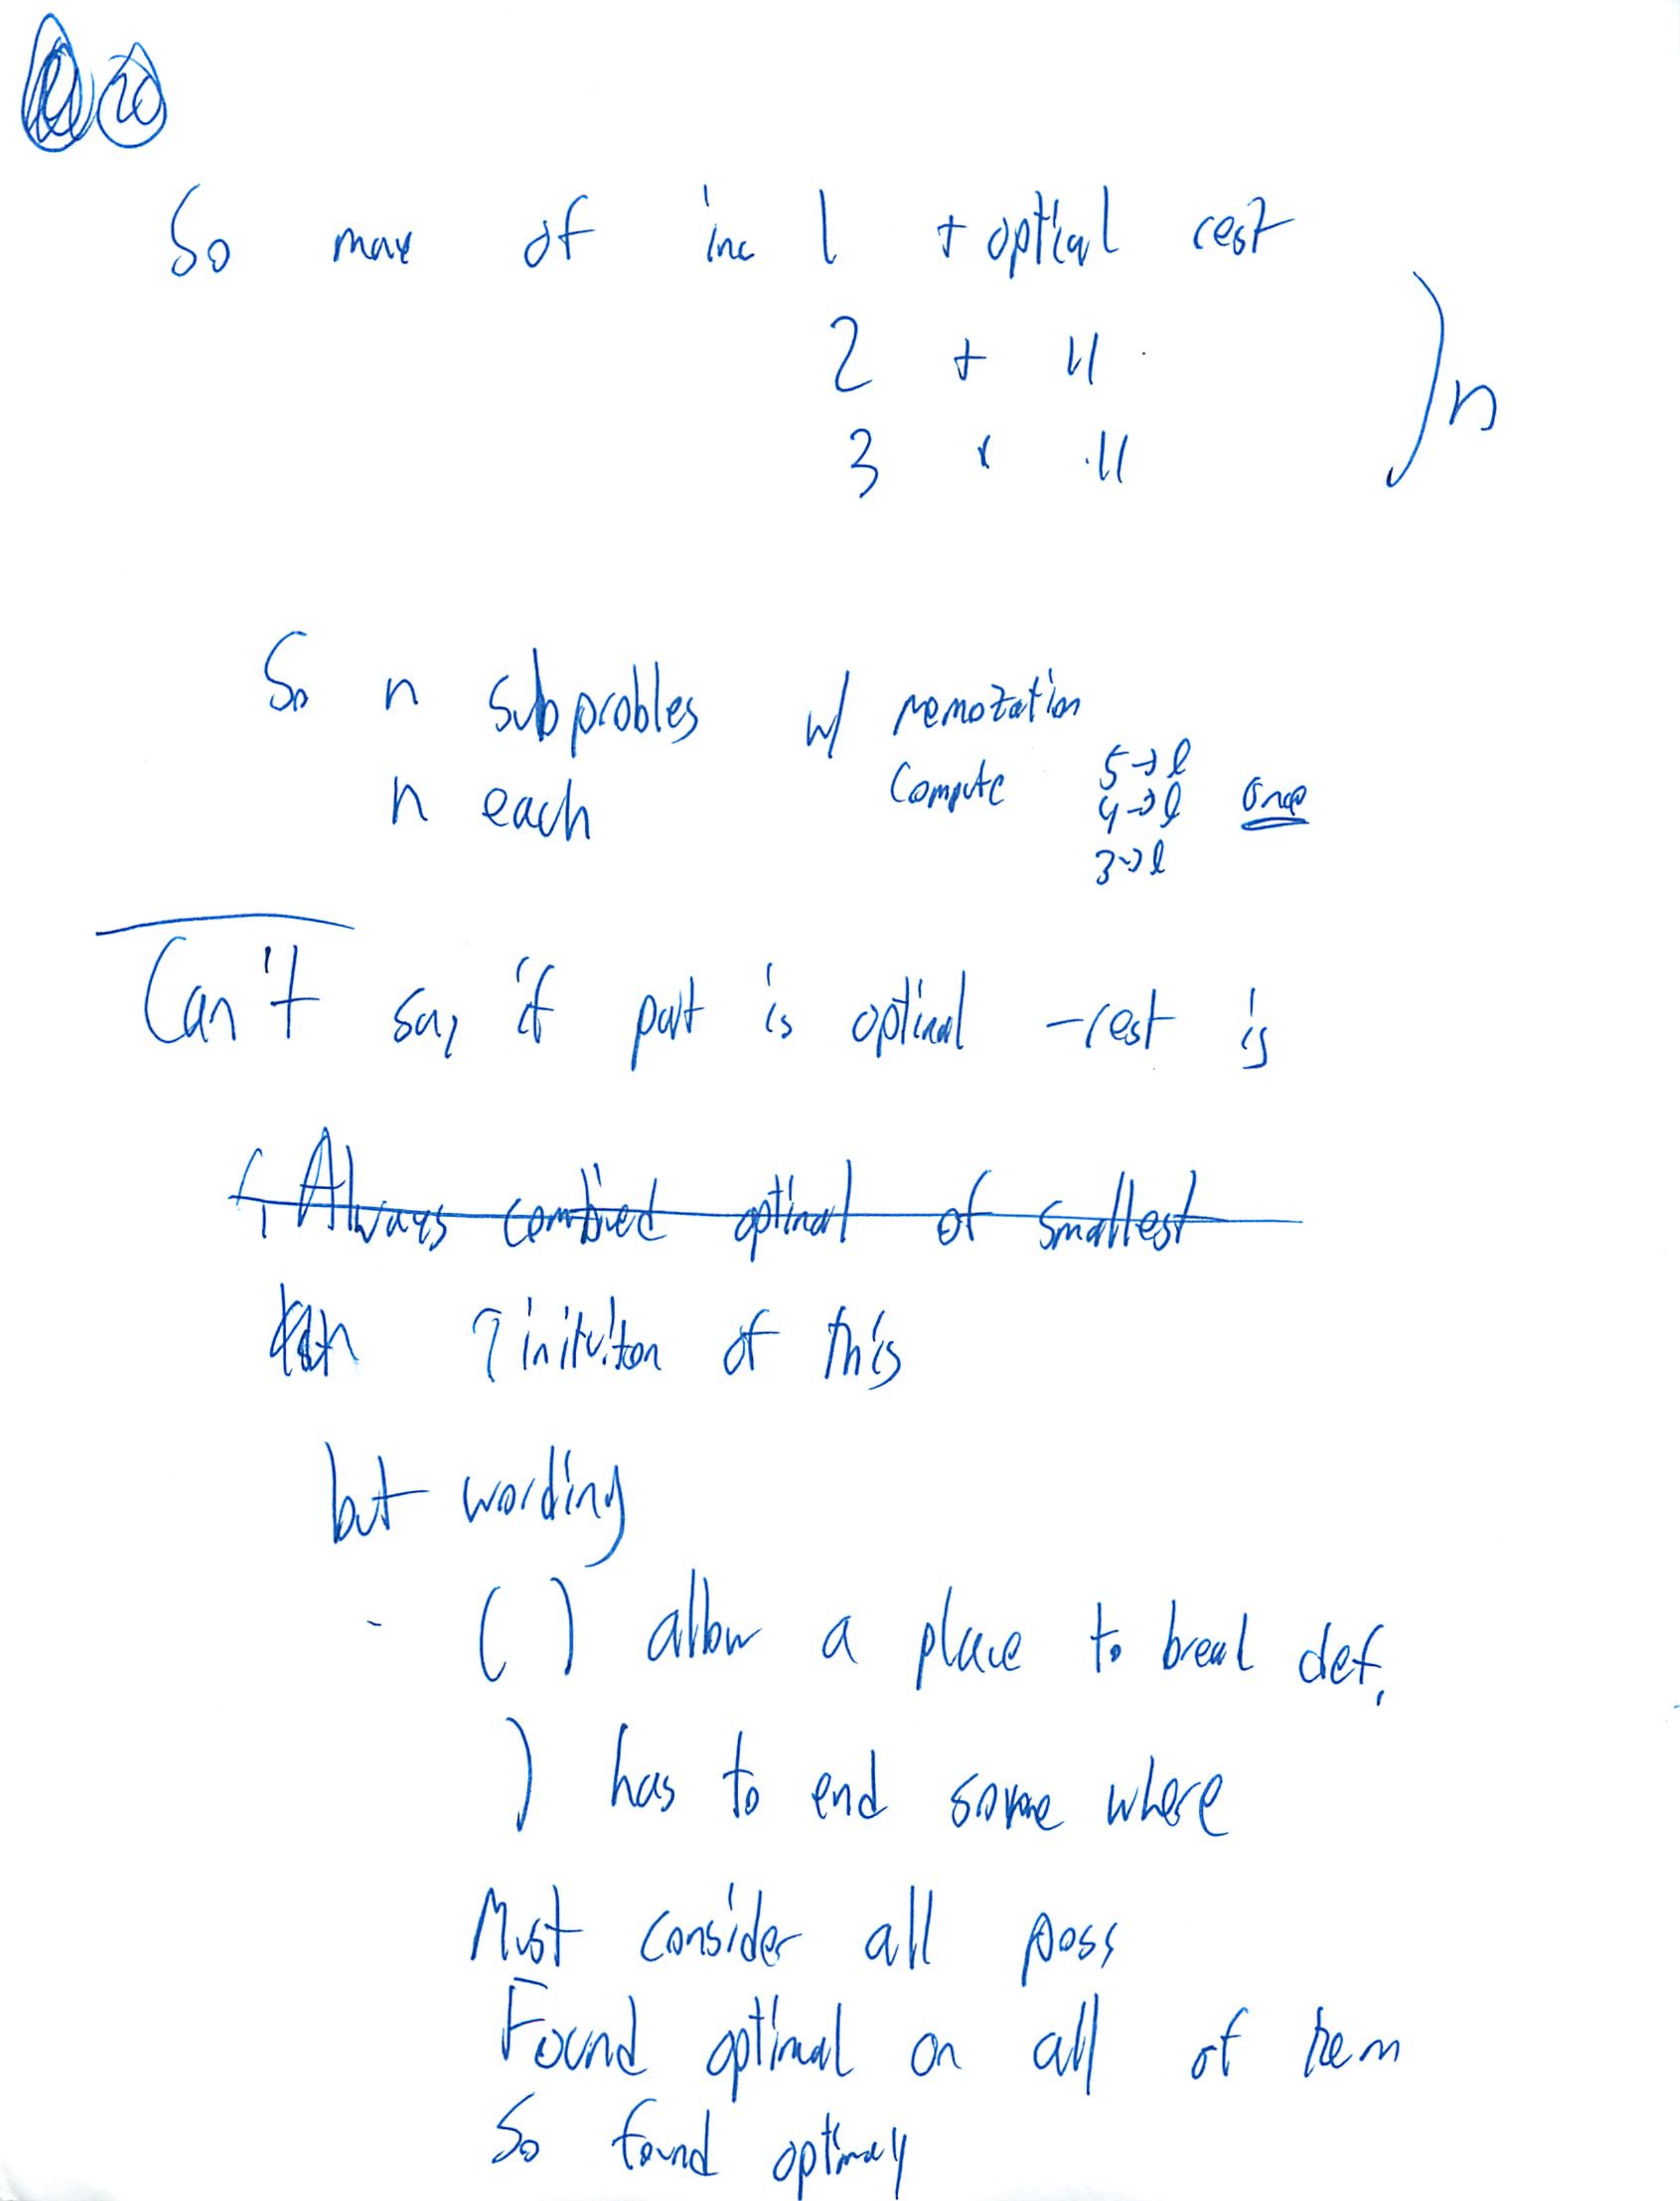 20
So max of inc 1 + optial rest
2 + 11
3 + 11
) n
So n subprobles w/ memozation
n each compute 5→l
4→l once
3→l
Can't say if part is optimal -rest is
Always combined optimal of smallest
inituiton of this
but wording
- ( ) allow a place to break def.
) has to end some where
Must consider all poss
Found optimal on all of them
So found optimaly